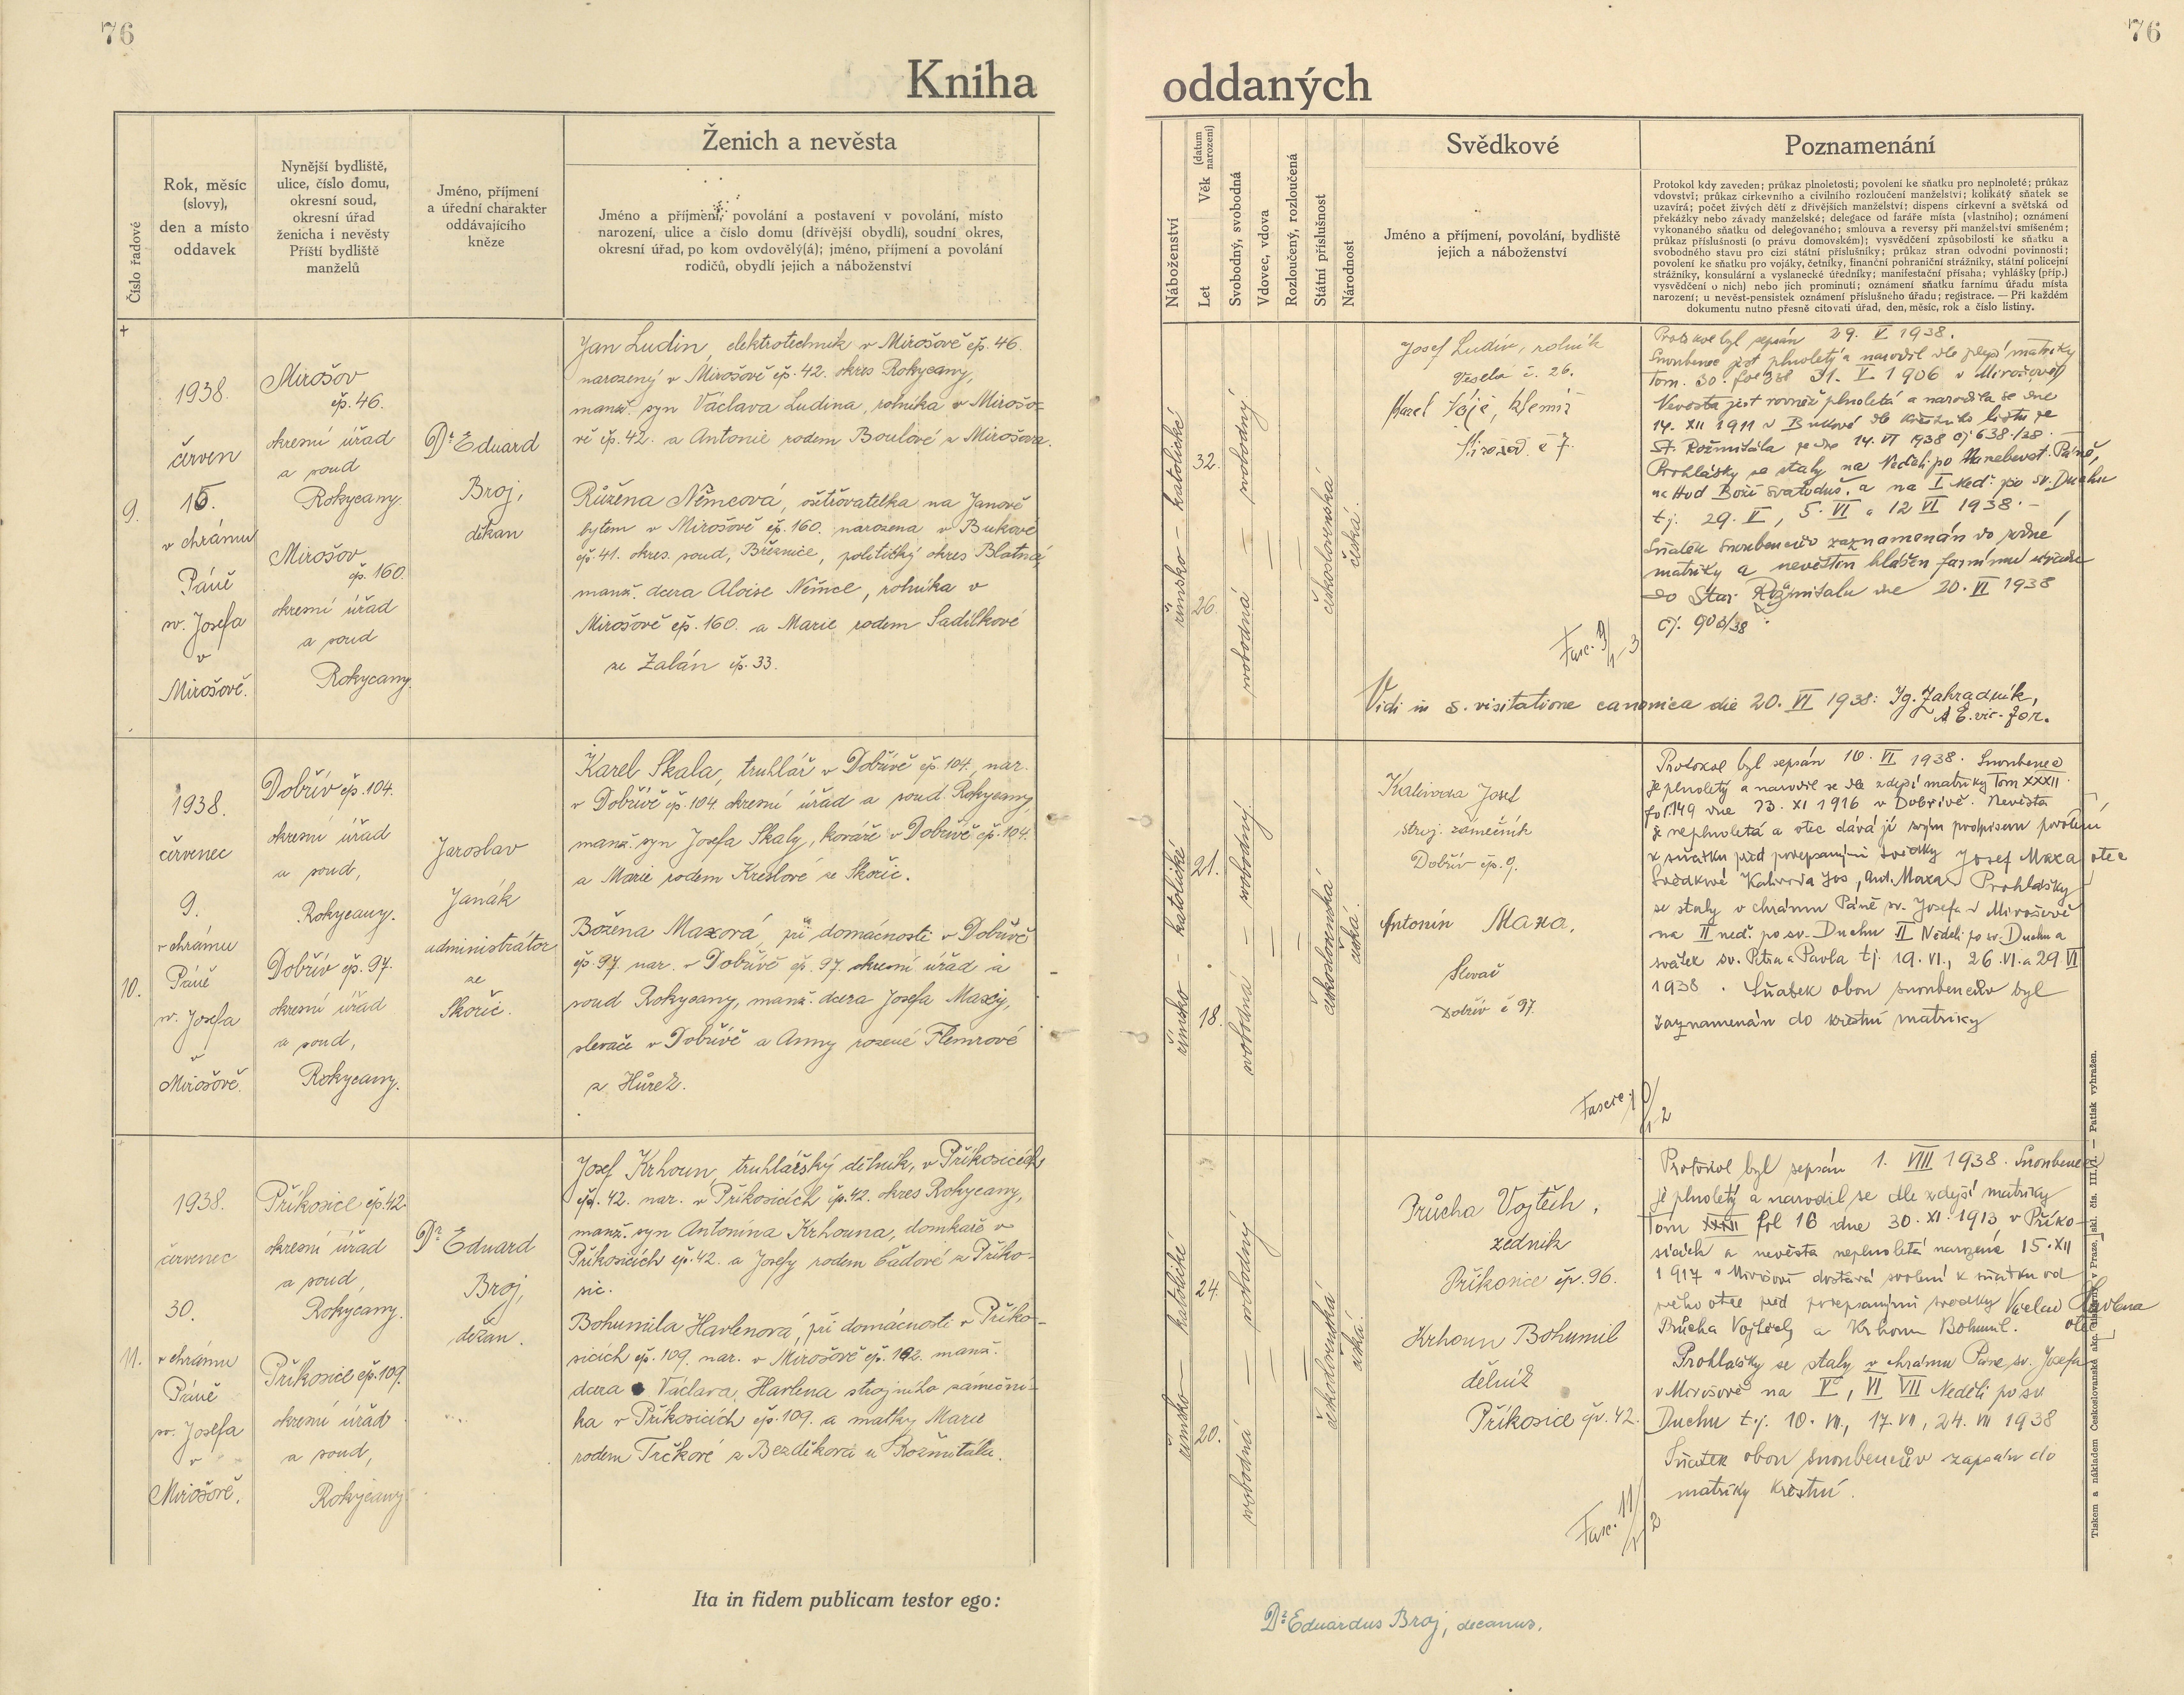 76
76
Kniha
oddaných
Číslo řadové
Rok, měsíc
(slovy),
den a místo
oddavek
Nynější bydliště,
ulice, číslo domu,
okresní soud,
okresní úřad
ženicha i nevěsty
Příští bydliště
manželů
Jméno, příjmení
a úřední charakter
oddávajícího
kněze
Ženich a nevěsta
Jméno a příjmení, povolání a postavení v povolání, místo
narození, ulice a číslo domu (dřívější obydlí), soudní okres,
okresní úřad, po kom ovdověly(á); jméno, příjmení a povolání
rodičů, obydlí jejich a náboženství
Náboženství
Let Věk (datum narození)
Svobodný, svobodná
Vdovec, vdova
Rozloučený, rozloučená
Státní příslušnost
Národnost
Svědkové
Jméno a příjmení, povolání, bydliště
jejich a náboženství
Poznamenání
Protokol kdy zaveden; průkaz plnoletosti; povolení ke sňatku pro neplnoleté; průkaz
vdovství; průkaz církevního a civilního rozloučení manželství; kolikátý sňatek se
uzavírá; počet živých dětí z dřívějších manželství; dispens církevní a světská od
překážky nebo závady manželské; delegace od faráře místa (vlastního); oznámení
vykonaného sňatku od delegovaného; smlouva a reversy při manželství smíšeném;
průkaz příslušnosti (o právu domovském); vysvědčení způsobilosti ke sňatku a
svobodného stavu pro cizí státní příslušníky; průkaz stran odvodní povinnosti;
povolení ke sňatku pro vojáky, četníky, finanční pohraniční strážníky, státní policejní
strážníky, konsulární a vyslanecké úředníky; manifestační přísaha; vyhlášky (příp.)
vysvědčení o nich) nebo jich prominutí; oznámení sňatku farnímu úřadu místa
narození; u nevěst-pensistek oznámení příslušného úřadu; registrace. — Při každém
dokumentu nutno přesně citovati úřad, den, měsíc, rok a číslo listiny.
9.
1938.
červen
15.
v chrámu
Páně
sv. Josefa
v
Mirošově.
Mirošov
čp. 46.
okresní úřad
a soud
Rokycany.
Mirošov
čp. 160.
okresní úřad
a soud
Rokycany.
Dr. Eduard
Broj,
děkan
Jan Ludin, elektrotechnik v Mirošově čp. 46.
narozený v Mirošově čp. 42. okres Rokycany,
manž. syn Václava Ludina, rolníka v Mirošo-
vě čp. 42. a Antonie rodem Boulové z Mirošova.
Růžena Němcová, ošetřovatelka na Janově
bytem v Mirošově čp. 160. narozena v Bukové
čp. 41. okres. soud, Březnice, politický okres Blatná,
manž. dcera Aloise Němce, rolníka v
Mirošově čp. 160. a Marie rodem Sadílkové
ze Zalán čp. 33.
římsko – katolické
32.
26.
svobodný
svobodná
československá
česká.
Josef Ludin, rolník
Veselá č. 26.
Karel
Mirošov č 7.
Protokol byl sepsán 29. V 1938.
Snoubenec jest plnoletý a narodil dle zdejší matriky
Tom. 30. fol 31. V. 1906 v Mirošově
Nevěsta jest rovněž plnoletá a narodila se dne
14. XII 1911 v Bukové dle křestního listu ze
St. Rožmitála ze dne 14. VI 1938 čj 638/38.
Prohlášky se staly na Neděli po Nanebevst. Páně,
na Hod Boží svatoduš. a na I Neď. po sv. Duchu
tj. 29. V, 5. VI a 12 VI 1938. –
Sňatek snoubenců zaznamenán do zdejší
matriky a nevěstin hlášen farnímu úřadu
do Star. Rožmitálu dne 20. VI 1938
čj. 903/38
Fasc. 9/1-3
Vidi in s. visitatione canonica die 20. VI 1938: Ig. Zahradník,
A. E. vic. for.
10.
1938.
červenec
9.
v chrámu
Páně
sv. Josefa
v
Mirošově.
Dobřív čp. 104.
okresní úřad
a soud,
Rokycany.
Dobřív čp. 97.
okresní úřad
a soud,
Rokycany.
Jaroslav
Janák
administrátor
ze
Skořic.
Karel Skala, truhlář v Dobřívě čp. 104, nar.
v Dobřívě čp. 104 okresní úřad a soud Rokycany,
manž. syn Josefa Skaly, kováře v Dobřívě čp. 104.
a Marie rodem Kreslové ze Skořic.
Božena Maxová, při domácnosti v Dobřívě
čp. 97 nar. v Dobřívě čp. 97. okresní úřad a
soud Rokycany, manž. dcera Josefa Maxy,
slevače v Dobřívě a Anny rozené Flemrové
z Hůrek.
římsko – katolické
21.
18.
svobodný
svobodná
československá
česká.
Kalivoda Josef
stroj. zámečník
Dobřív čp. 9.
Antonín Maxa,
Slevač
Dobřív č 97.
Protokol byl sepsán 10. VI 1938. Snoubenec
je plnoletý a narodil se dle zdejší matriky Tom XXXII
fol. 149 dne 23. XI 1916 v Dobřívě. Nevěsta
je neplnoletá a otec dává jí svým podpisem povolení
k sňatku před podepsanými svědky Josef Maxa otec
Svědkové Kalivoda Jos, Ant. Maxa Prohlášky
se staly v chrámu Páně sv. Josefa v Mirošově
na II neď. po sv. Duchu II Neděli po sv. Duchu a
svátek sv. Petra a Pavla tj. 19. VI., 26. VI. a 29 VI
1938. Sňatek obou snoubenců byl
zaznamenán do křestní matriky
Fasc. 10/1-2
11.
1938.
červenec
30.
v chrámu
Páně
sv. Josefa
v
Mirošově.
Příkosice čp. 42.
okresní úřad
a soud,
Rokycany.
Příkosice čp. 109.
okresní úřad
a soud,
Rokycany
Dr. Eduard
Broj,
děkan.
Josef Krhoun, truhlářský dělník, v Příkosicích
čp. 42. nar. v Příkosicích čp. 42. okres Rokycany,
manž. syn Antonína Krhouna, domkaře v
Příkosicích čp. 42. a Josefy rodem Čadové z Příko-
sic.
Bohumila Havlenová, při domácnosti v Příko-
sicích čp. 109. nar. v Mirošově čp. 192. manž.
dcera Václava Havlena strojního zámeční-
ka v Příkosicích čp. 109. a matky Marie
rodem Trčkové z Bezděkova u Rožmitálu.
římsko – katolické
24.
20.
svobodný
svobodná
československá
česká.
Průcha Vojtěch,
zedník
Příkosice čp. 96.
Krhoun Bohumil
dělník
Příkosice čp. 42.
Protokol byl sepsán 1. VIII 1938. Snoubenec
je plnoletý a narodil se dle zdejší matriky
Tom XXXII fol 16 dne 30. XI. 1913 v Příko-
sicích a nevěsta neplnoletá narozená 15. XII
1917 v Mirošově dostává svolení k sňatku od
svého otce před podepsanými svědky Václav Havlena
Průcha Vojtěch a Krhoun Bohumil. otec
Prohlášky se staly v chrámu Páně sv. Josefa
v Mirošově na V, VI VII Neděli po sv
Duchu t.j. 10. VII., 17. VII, 24. VII 1938
Sňatek obou snoubenců zapsán do
matriky křestní.
Fasc. 11/1-2
Tiskem a nákladem Československé akc. tiskárny v Praze. skl. čís. III. d. — Patisk vyhražen.
Ita in fidem publicam testor ego:
Dr. Eduardus Broj, decanus.